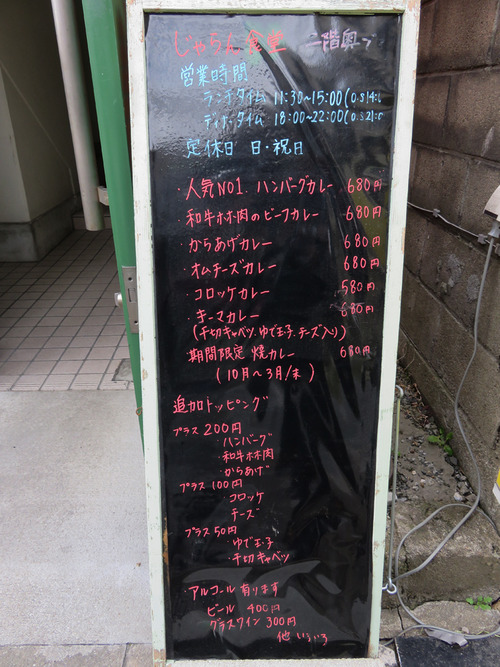 じゃらん食堂 二階奥
営業時間
ランチタイム 11:30~15:00(O.S14:
ディナータイム 18:00~22:00(O.S21:
定休日 日・祝日
・人気NO1. ハンバーグカレー 680円
・和牛ホホ肉のビーフカレー 680円
・からあげカレー 680円
・オムチーズカレー 680円
・コロッケカレー 580円
・キーマカレー 680円
(千切キャベツ.ゆで玉子.チーズ入り)
期間限定 焼カレー 680円
(10月~3月/末)
追加トッピング
プラス 200円
・ハンバーグ
・和牛ホホ肉
・からあげ
プラス 100円
・コロッケ
・チーズ
プラス 50円
・ゆで玉子
・千切キャベツ
・アルコール有ります
ビール 400円
グラスワイン 300円
他 いろいろ